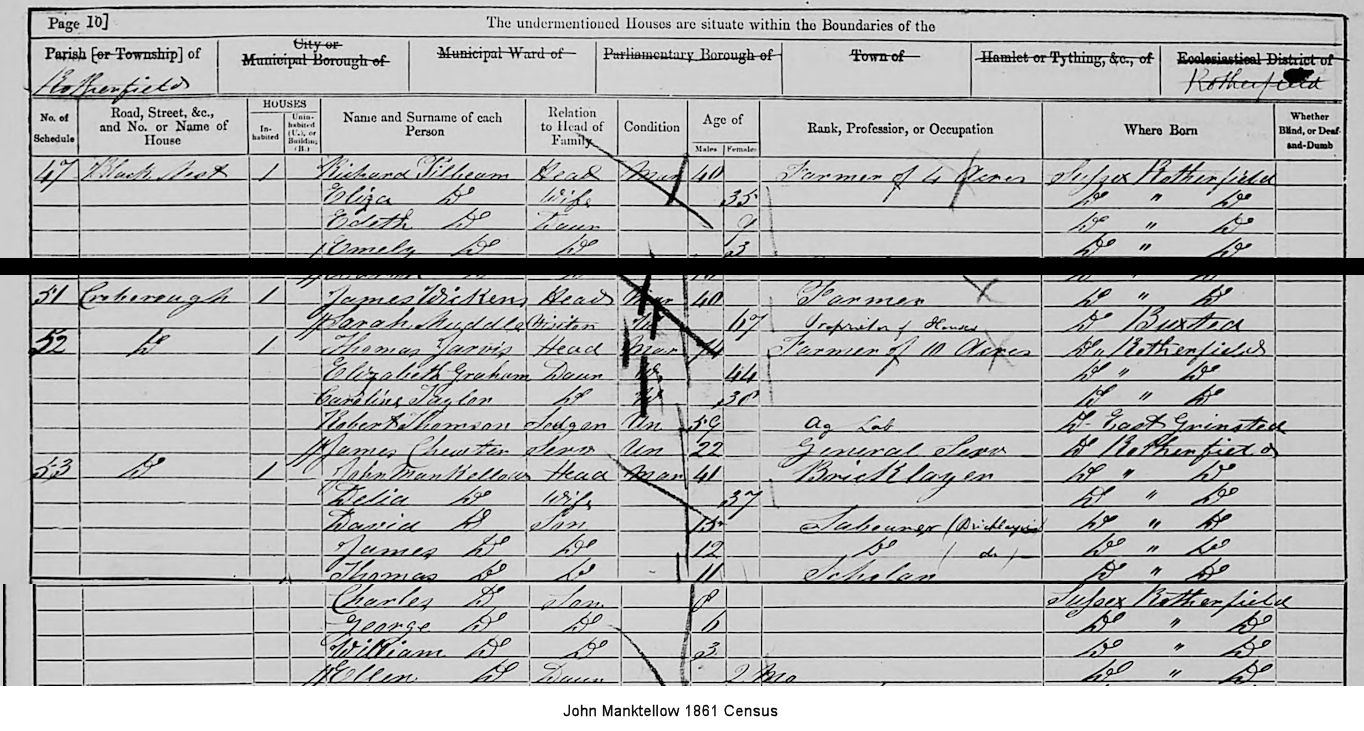 Page 10] The undermentioned Houses are situate within the Boundaries of the
Parish [or Township] of City or Municipal Borough of Municipal Ward of Parliamentary Borough of Town of Hamlet or Tything, &c., of Ecclesiastical District of
Rotherfield Rotherfield
No. of Schedule Road, Street, &c., and No. or Name of House HOUSES Inhabited Uninhabited (U.), or Building (B.) Name and Surname of each Person Relation to Head of Family Condition Age of Males Females Rank, Profession, or Occupation Where Born Whether Blind, or Deaf-and-Dumb
47 Black Nest 1 Richard Pilbeam Head Mar 40 Farmer of 4 Acres Sussex Rotherfield
Eliza Do Wife 35 Do " Do
Edeth Do Daur 9 Do " Do
Emely Do Do 3 Do " Do
51 Croborough 1 James Wickens Head Mar 40 Farmer Do " Do
Sarah Muddle Visitor 67 Proprietor of Houses Do Buxted
52 Do 1 Thomas Jarvis Head Mar 74 Farmer of 10 Acres Do " Rotherfield
Elizabeth Graham Daur 44 Do " Do
Caroline Taylor Do 30 Do " Do
Robert Thomson Lodger Un 59 Ag Lab Do East Grinsted
James Chewter Serv Un 22 General Serv Do Rotherfield
53 Do 1 John Mankellow Head Mar 41 Bricklayer Do " Do
Delia Do Wife 37 Do " Do
David Do Son 15 Labourer (Bricklayers) Do " Do
James Do Do 12 Do ( do ) Do " Do
Thomas Do Do 11 Scholar Do " Do
Charles Do Son 8 Sussex Rotherfield
George Do Do 6 Do " Do
William Do Do 3 Do " Do
Ellen Do Daur 2 Mo Do " Do
John Manktellow 1861 Census